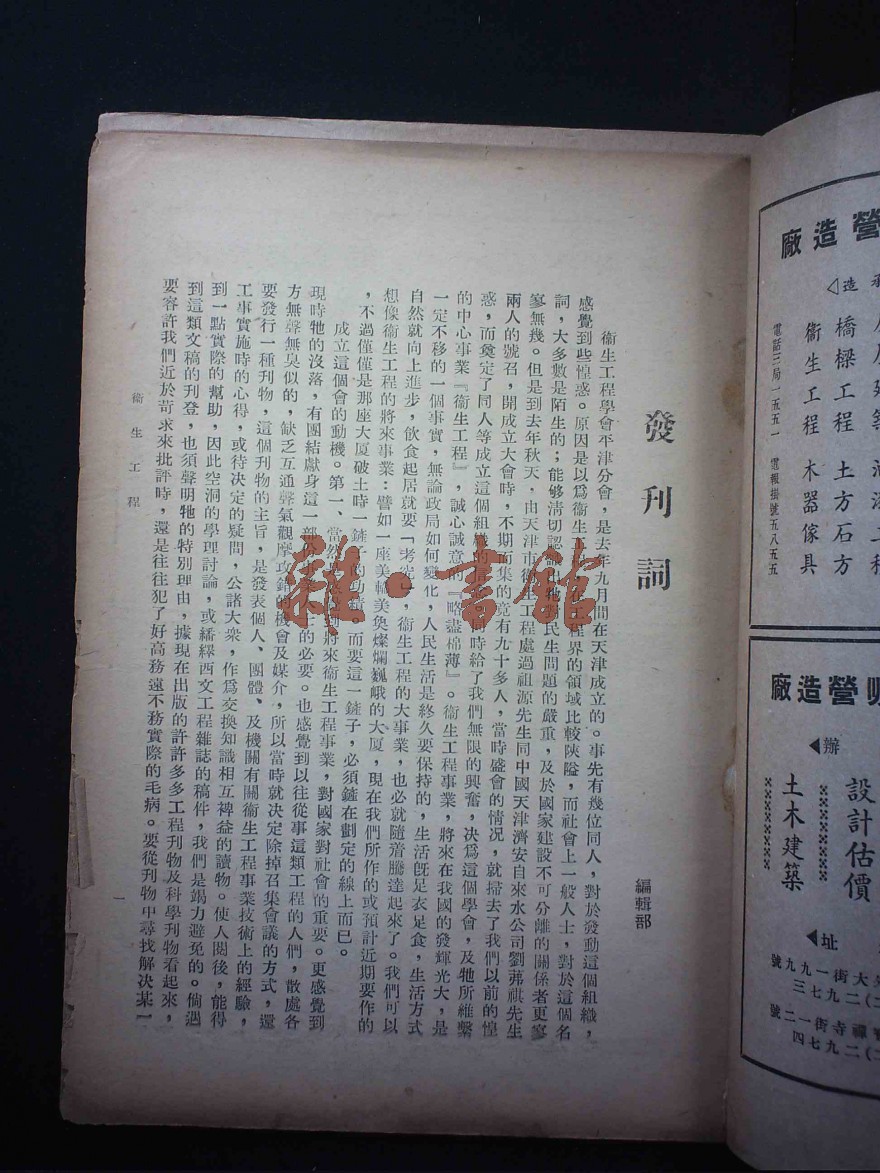 發刊詞
編輯部
衞生工程學會平津分會，是去年九月間在天津成立的。事先有幾位同人，對於發動這個組織，
感覺到些惶惑。原因是以為衞生工程界的領域比較陝隘，而社會上一般人士，對於這個名
詞，大多數是陌生的；能够淸切認識出牠對民生問題的嚴重，及於國家建設不可分離的關係者更寥
寥無幾。但是到去年秋天，由天津市衞生工程處過祖源先生同中國天津濟安自來水公司劉茀祺先生
兩人的號召，開成立大會時，不期而集的竟有九十多人，當時盛會的情況，就掃去了我們以前的惶
惑，而奠定了同人等成立這個組織的信同時給了我們無限的興奮，決爲這個學會，及牠所維繫
的中心事業『衞生工程』，誠心誠意的『略盡棉薄』。衞生工程事業，將來在我國的發輝光大，是
一定不移的一個事實，無論政局如何變化，人民生活是終久要保持的，生活旣足衣足食，生活方式
自然就向上進步，飲食起居就要「考究」，衞生工程的大事業，也必就隨着騰達起來了。我們可以
想像衞生工程的將來事業：譬如一座美輪美奐燦爛巍峨的大厦，現在我們所作的或預計近期要作的
，不過僅僅是那座大厦破土時一鏟子的功績，而要這一鏟子，必須鏟在劃定的線上而已。
成立這個會的動機。第一、當然是感到將來衞生工程事業，對國家對社會的重要。更感覺到
現時牠的沒落，有團結獻身這一部士的必要。也感覺到以往從事這類工程的人們，散處各
方無聲無臭似的，缺乏互通聲氣觀摩攻錯的機會及媒介，所以當時就決定除掉召集會議的方式，還
要發行一種刊物，這個刊物的主旨，是發表個人、團體、及機關有關衞生工程事業技術上的經驗，
工事實施時的心得，或待決定的疑問，公諸大衆，作爲交換知識相互裨益的讀物。使人閱後，能得
到一點實際的幫助，因此空洞的學理討論，或繙繹西文工程雜誌的稿件，我們是竭力避免的。倘遇
到這類文稿的刊登，也須聲明牠的特別理由，據現在出版的許許多多工程刊物及科學刊物看起來，
要容許我們近於苛求來批評時，還是往往犯了好高務遠不務實際的毛病。要從刊物中尋找解決某一
衞生工程
一
雜·書館
營造廠
造
橋樑工程 土方石方
衞生工程 木器傢具
電話三局一五五一 電報掛號五八五五
營造廠
辦
設計估價
土木建築
址
大街一九九號
二九七三
禪寺街一二號
二九七四